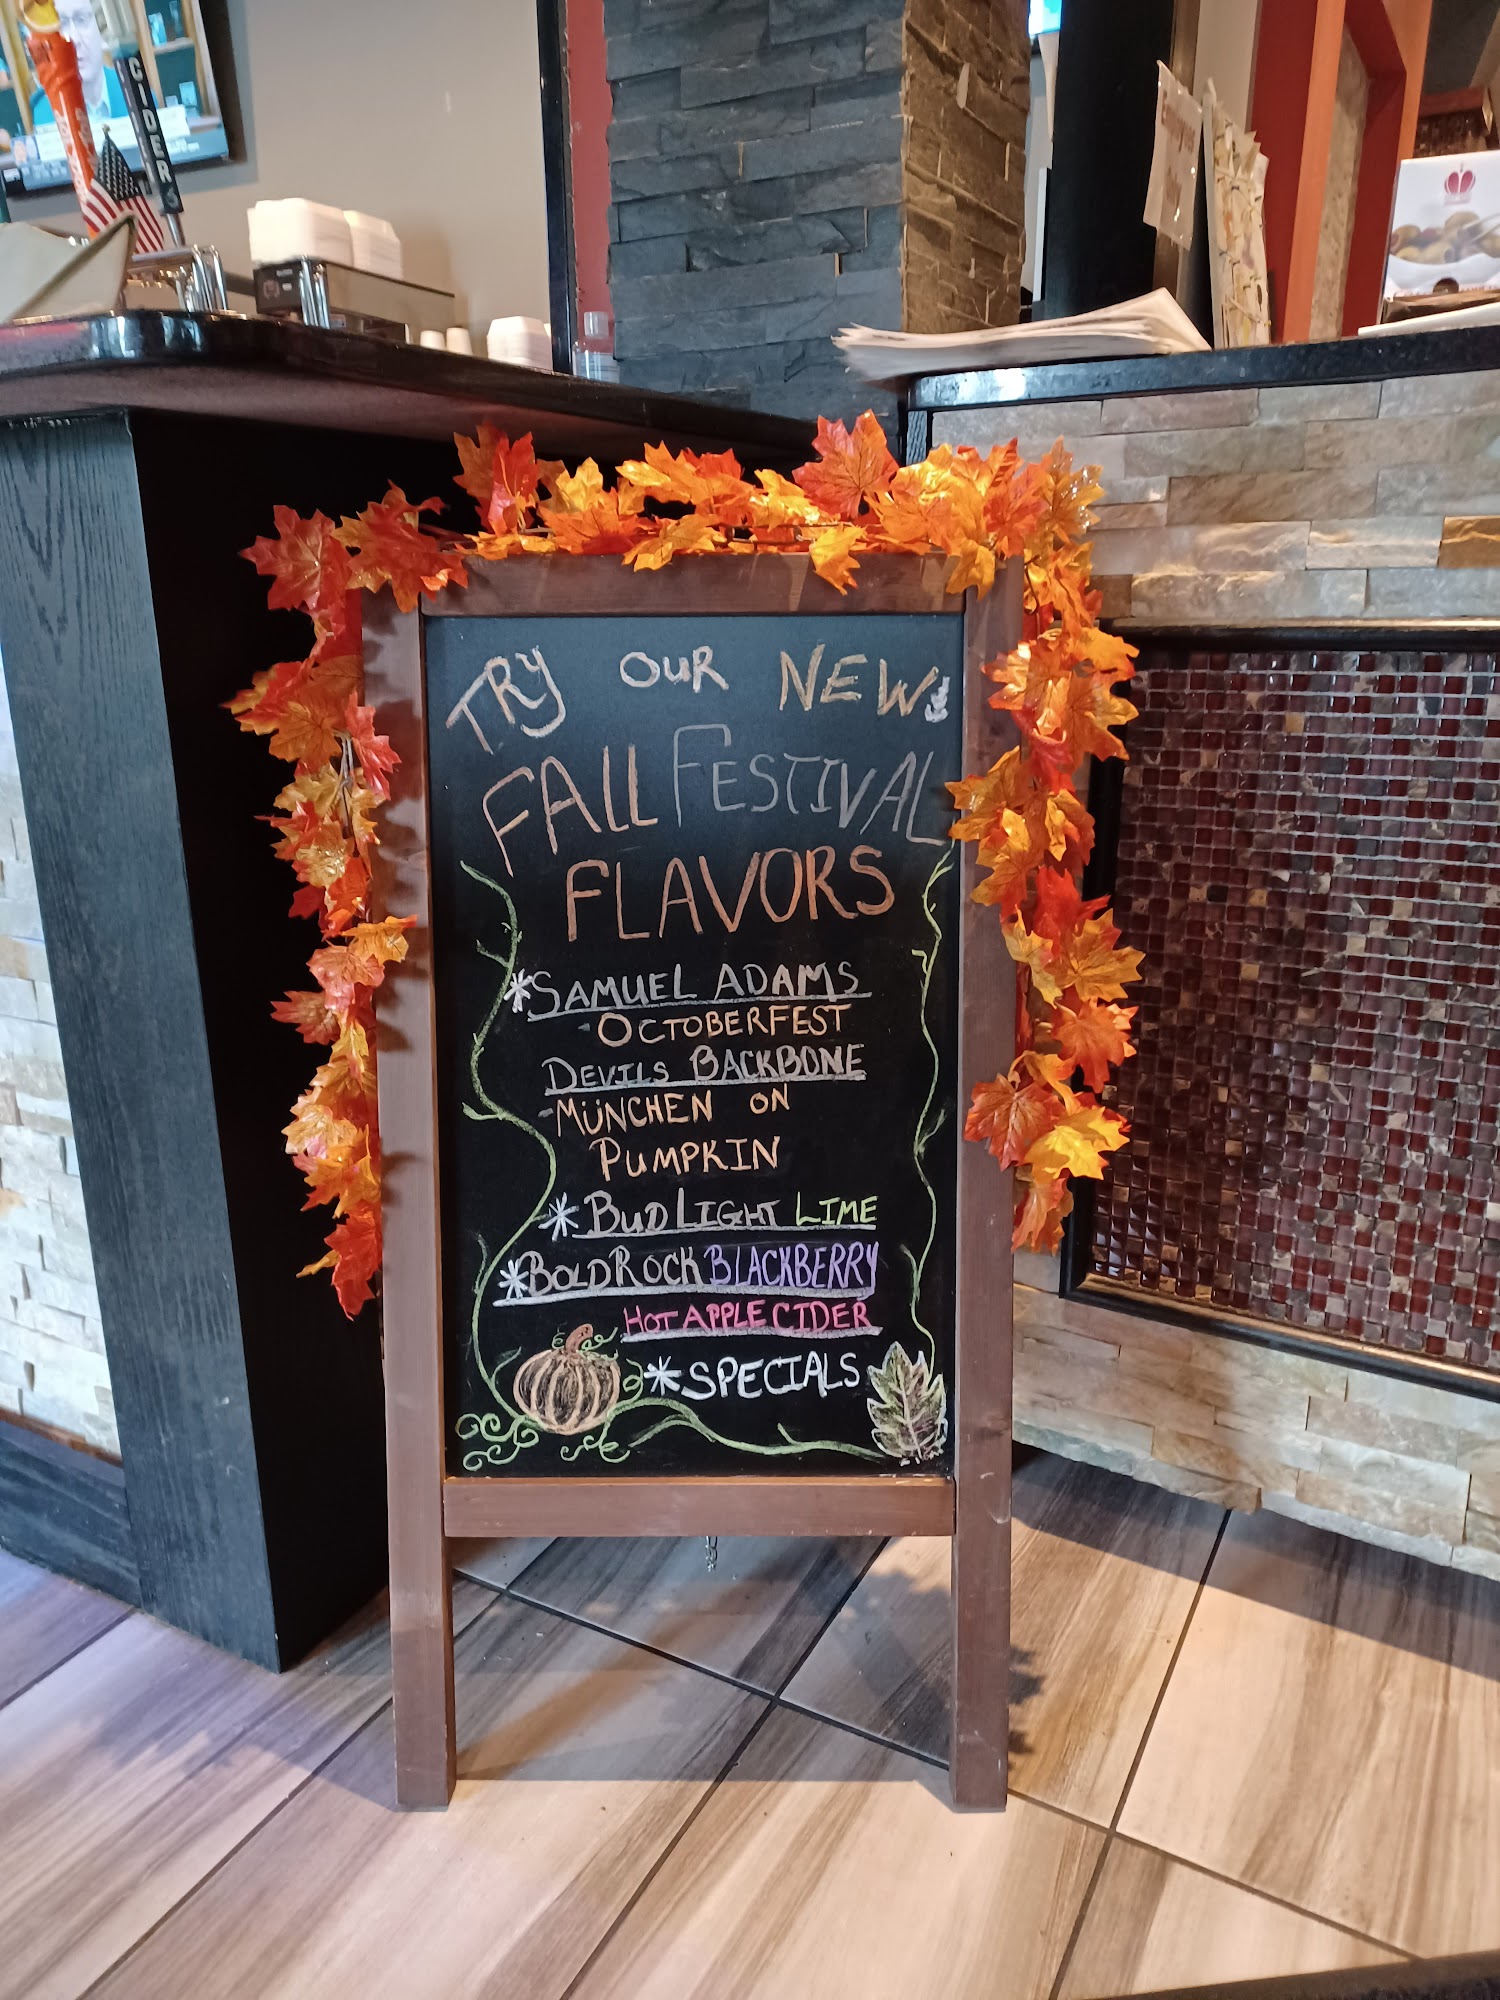 CIDER
TRY OUR NEW
FALL FESTIVAL
FLAVORS
*SAMUEL ADAMS
-OCTOBERFEST
DEVILS BACKBONE
-MÜNCHEN ON
PUMPKIN
*BUD LIGHT LIME
*BOLD ROCK BLACKBERRY
HOT APPLE CIDER
*SPECIALS